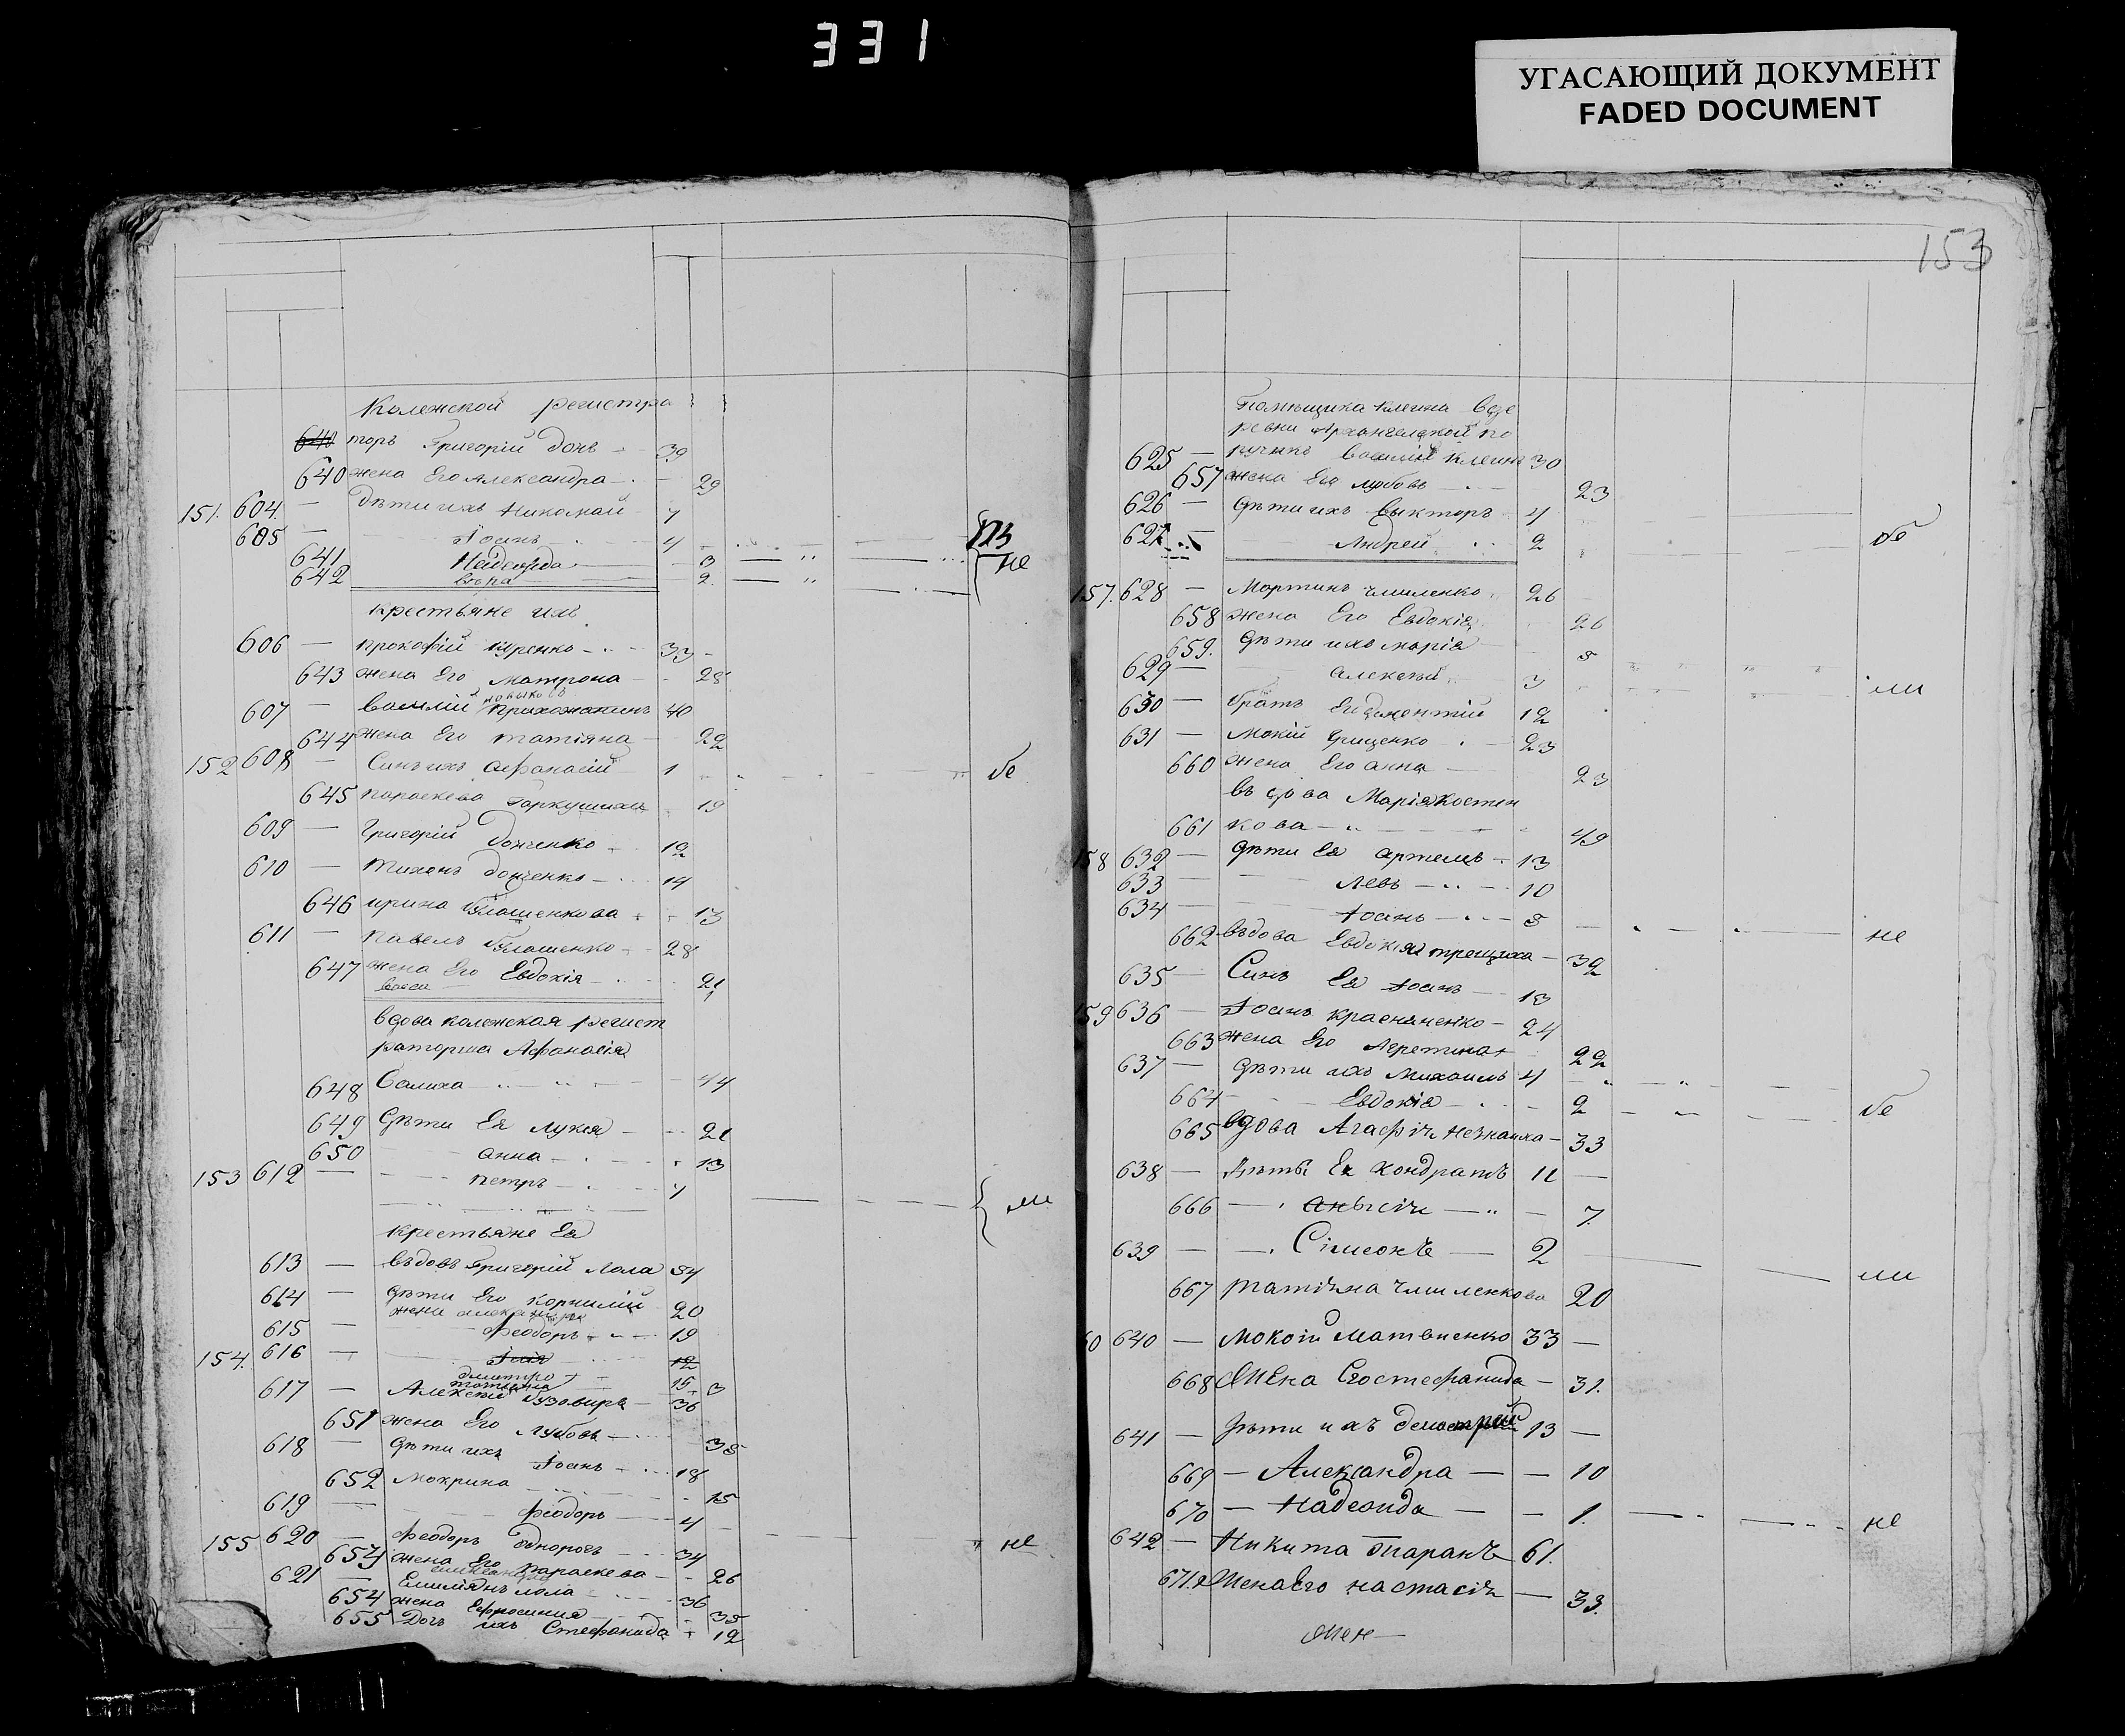 331
УГАСАЮЩИЙ ДОКУМЕНТ
FADED DOCUMENT
153
Колежской регистра
640 торъ Григорій Донъ 39
640 жена Его Александра 29
151. 604. Дѣти ихъ Николай 7
605 Іоанъ 4
641 Надежда 3 не
642 вѣра 2
крестьяне ихъ
606 прокофій Куренко 33
643 жена Его Матрона 28
607 Василій прихожанинъ 40
644 жена Его татіяна 22
152 608 Синъ ихъ Афанасій 1 бе
645 параскева Гаркушина 19
609 Григорій Донченко 12
610 Тихонъ Донченко 14
646 ирина 13
611 павелъ 28
647 жена Его Евдокія 21
вдова колежская регист
раторша Афанасія
648 44
649 Дѣти Ея Лукія 21
650 анна 13
153 612 петръ 7 ли
крестьяне Ея
613 вѣдовъ Григорій Лола 54
614 Дѣти Его Корнилій 20
615 Феодоръ 19
154. 616 Илія 12
Дмитро 15
617 Алексѣй 36 3
651 жена Его Любовь 35
618 Дѣти ихъ Іоанъ 18
652 Мокрина 15
619 Феодоръ 4
155 620 Феодоръ Однорогъ 34 не
653 жена Его параскева 26
621 Емиліянъ лола 36
654 жена Ефросиния 35
655 Дочь ихъ Стефанида 12
Помѣщика клеина вдере
ревни Архангелской по
625 ручикъ Василій клеинъ 30
657 жена Его любовь 23
626 Дѣти ихъ Викторъ 4
627 Андрей 2 бе
157. 628 Мартинъ чмиленко 26
658 жена Его Евдокія 26
659. Дѣти ихъ марія 5
629 Алексѣй 3 ли
630 братъ Его 12
631 Мокій Гриценко 23
660 жена Его анна 23
въдова Марія Костен
661 кова 49
158 632 Дѣти Ея Артемъ 13
633 Левъ 10
634 Іоанъ 8 не
662 вѣдова Евдокія 32
635 Синъ Ея Іоанъ 13
159 636 Іоанъ красняненко 24
663 жена Его 22
637 Дѣти ихъ Михаилъ 4
664 Евдокія 2 бе
665 вдова Агафія Незнаиха 33
638 Дѣти Ея Кондратъ 11
666 анысія 7.
639 Сімеонъ 2 ли
667 Татіяна чмиленкова 20
640 Мокой Матвиенко 33
668 Жена Его стефанида 31.
641 Дѣти ихъ 13
669 Александра 10
670 Надежда 1. не
642 Никита Таранъ 61.
671. Жена Его настасія 33.
Жен